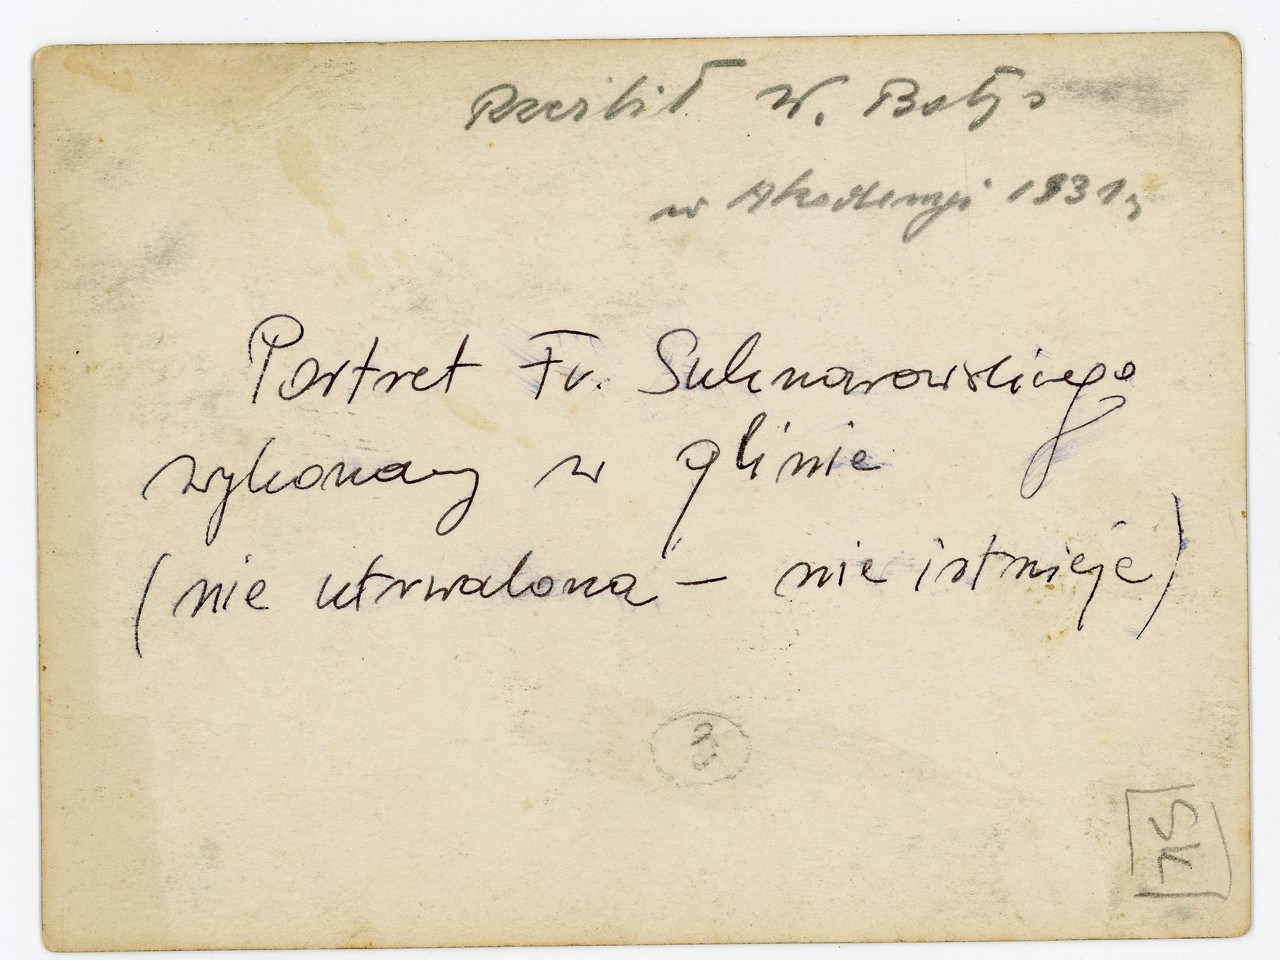 Rzeźbił W. Bałys
w Akademji 1931 r
Portret Fr. Suknarowskiego
wykonany w glinie
(nie utrwalona – nie istnieje)